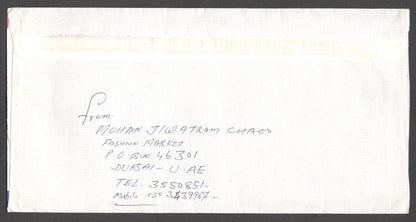 from
MOHAN JIWATRAM
FASHION MARKET
P.O Box 46301
DUBAI - U.AE
TEL. 3550851.
Mobile 050